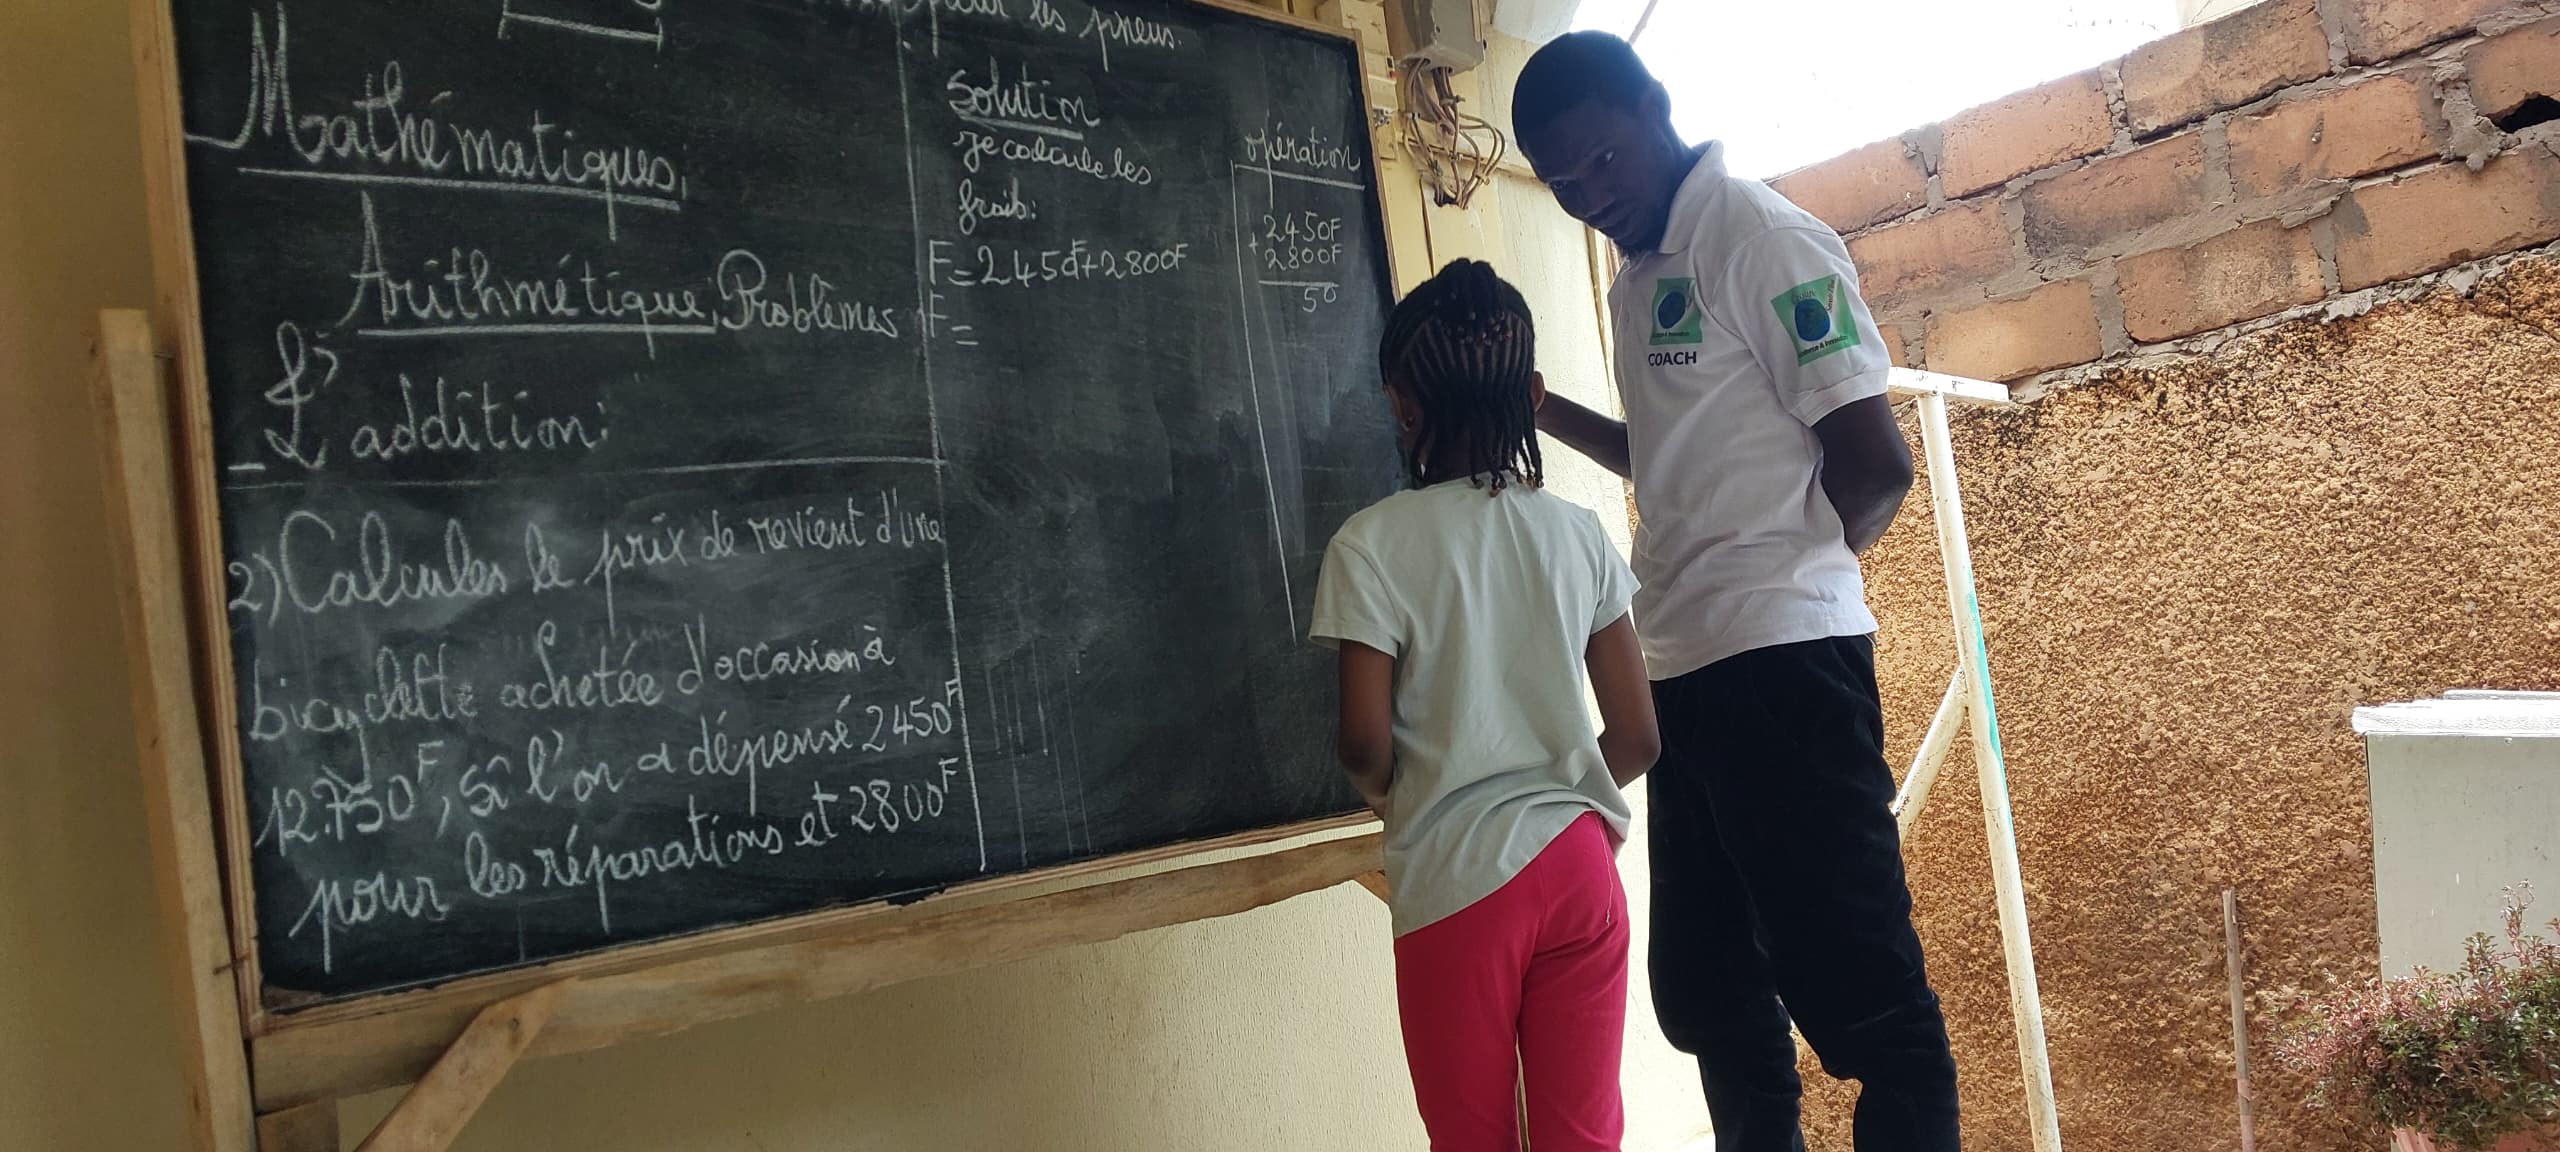 pour les pneus.
Mathématiques;
Arithmétique; Problèmes
L'addition:
2) Calcules le prix de revient d'une
bicyclette achetée d'occasion à
12.750F, si l'on a dépensé 2450F
pour les réparations et 2800F
Solution
je calcule les
frais:
F=2450F+2800F
F=
opération
2450F
+ 2800F
50
COACH